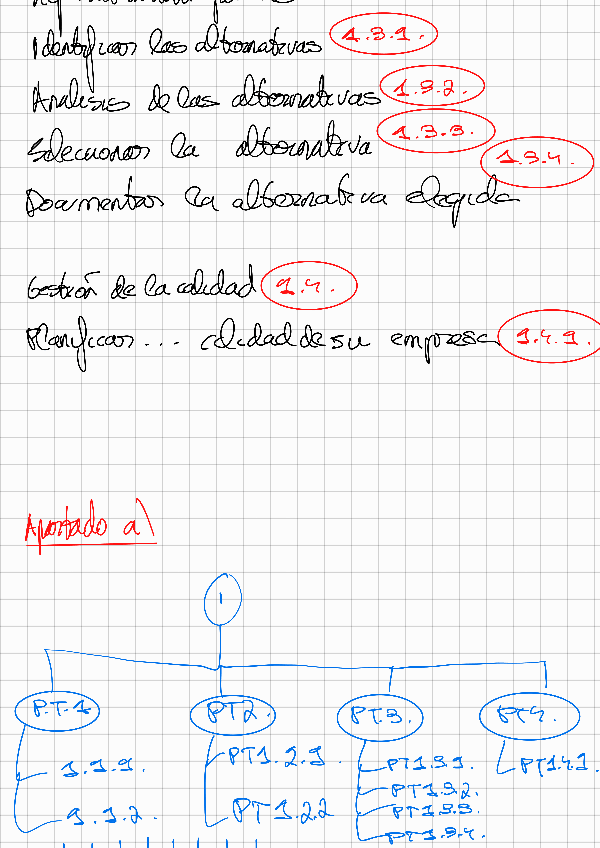 Identificar las alternativas 1.3.1.
Analisis de las alternativas 1.3.2.
Seleccionar la alternativa 1.3.3.
Documentar la alternativa elegida 1.3.4.
Gestión de la calidad 1.4.
Planificar... calidad de su empresa 1.4.1.
Apartado a)
1
P.T.1 PT2. PT.3. PT4.
1.1.1. PT1.2.1 PT1.3.1. PT1.4.1.
1.1.2. PT1.2.2 PT1.3.2.
PT1.3.3.
PT1.3.4.